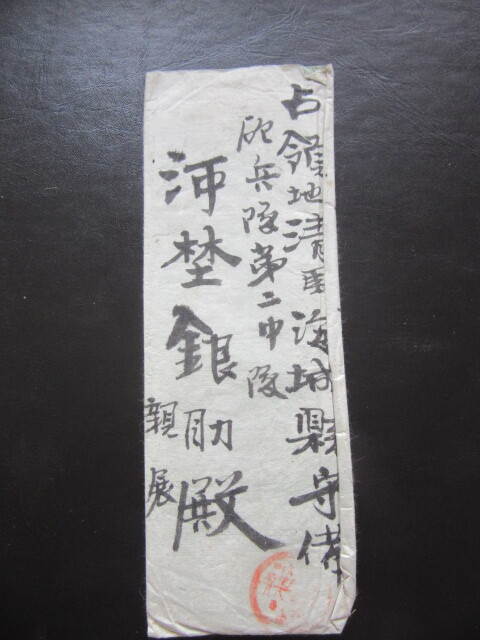 占領地清国海城縣守備
砲兵隊第二中隊
河埜銀助殿
親展